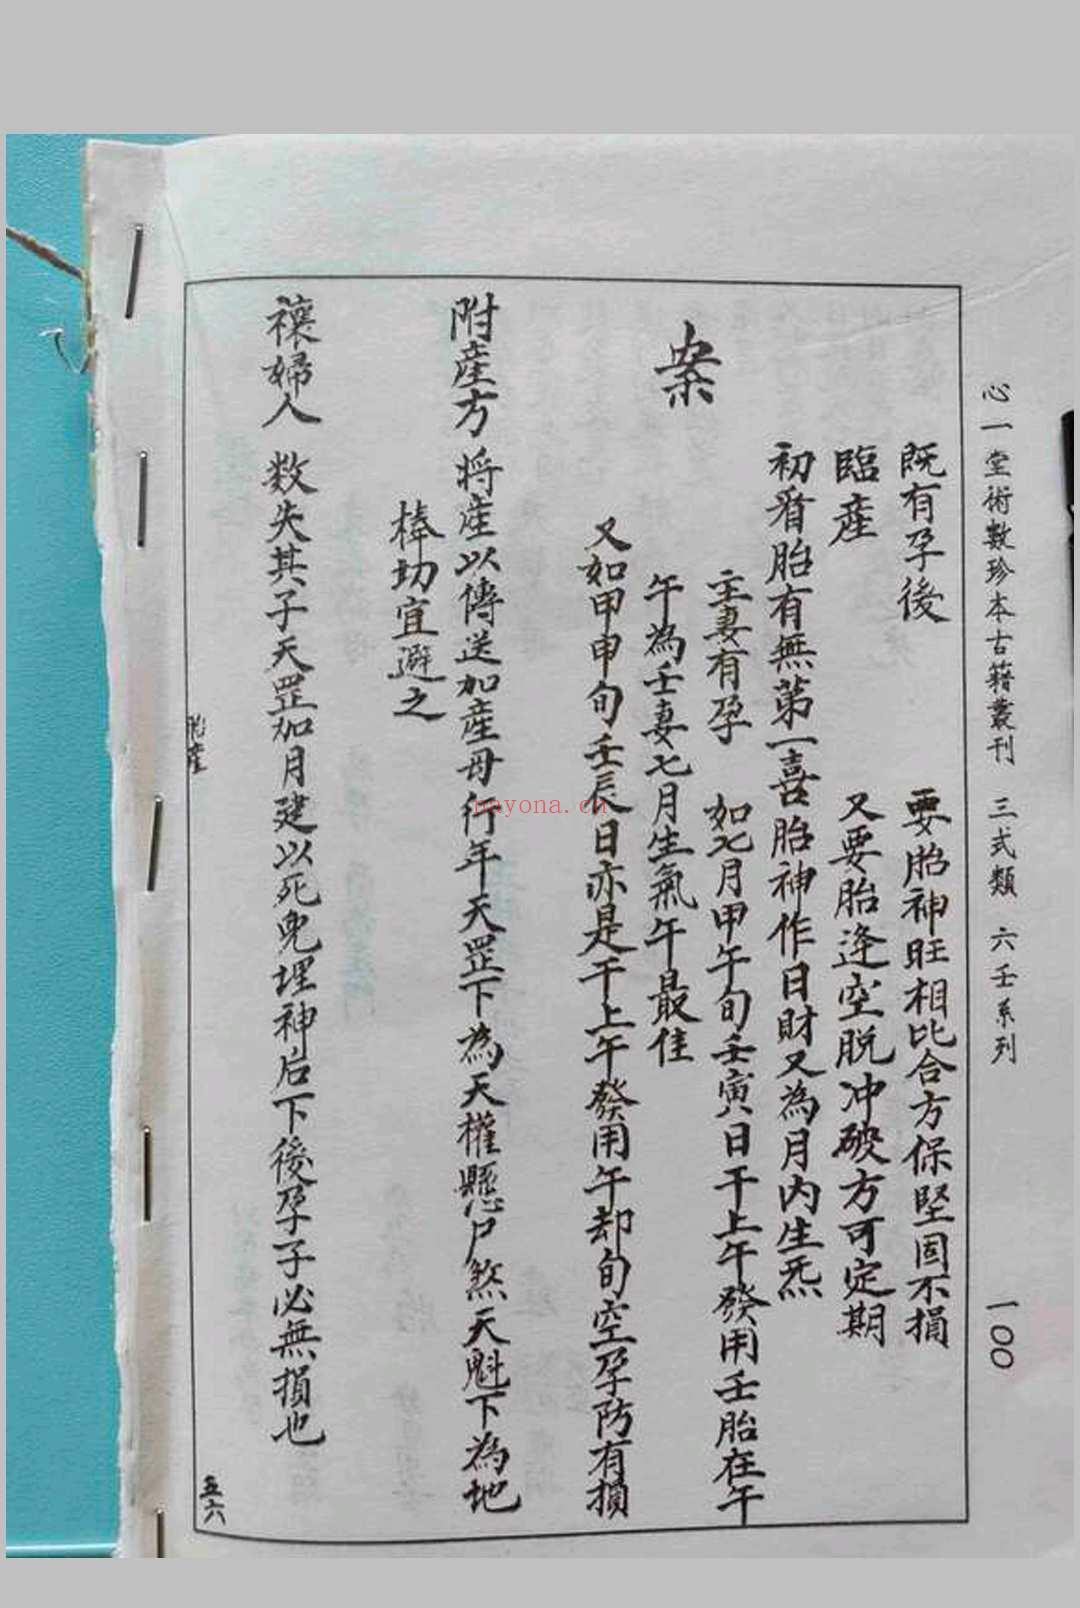 心一堂術數珍本古籍叢刊 三式類 六壬系列 一00
既有孕後 要胎神旺相比合方保堅固不損
臨產 又要胎逢空脱冲破方可定期
初看胎有無第一喜胎神作日財又為月内生炁
主妻有孕 如七月甲午旬壬寅日干上午發用壬胎在午
案
午為壬妻七月生氣午最佳
又如甲申旬壬辰日亦是干上午發用午却旬空孕防有損
附產方 將產以傳送加產母行年天罡下為天權懸尸煞天魁下為地
棒切宜避之
禳婦人 数失其子天罡加月建以死兒埋神后下後孕子必無損也
產
五六
bayona.cn